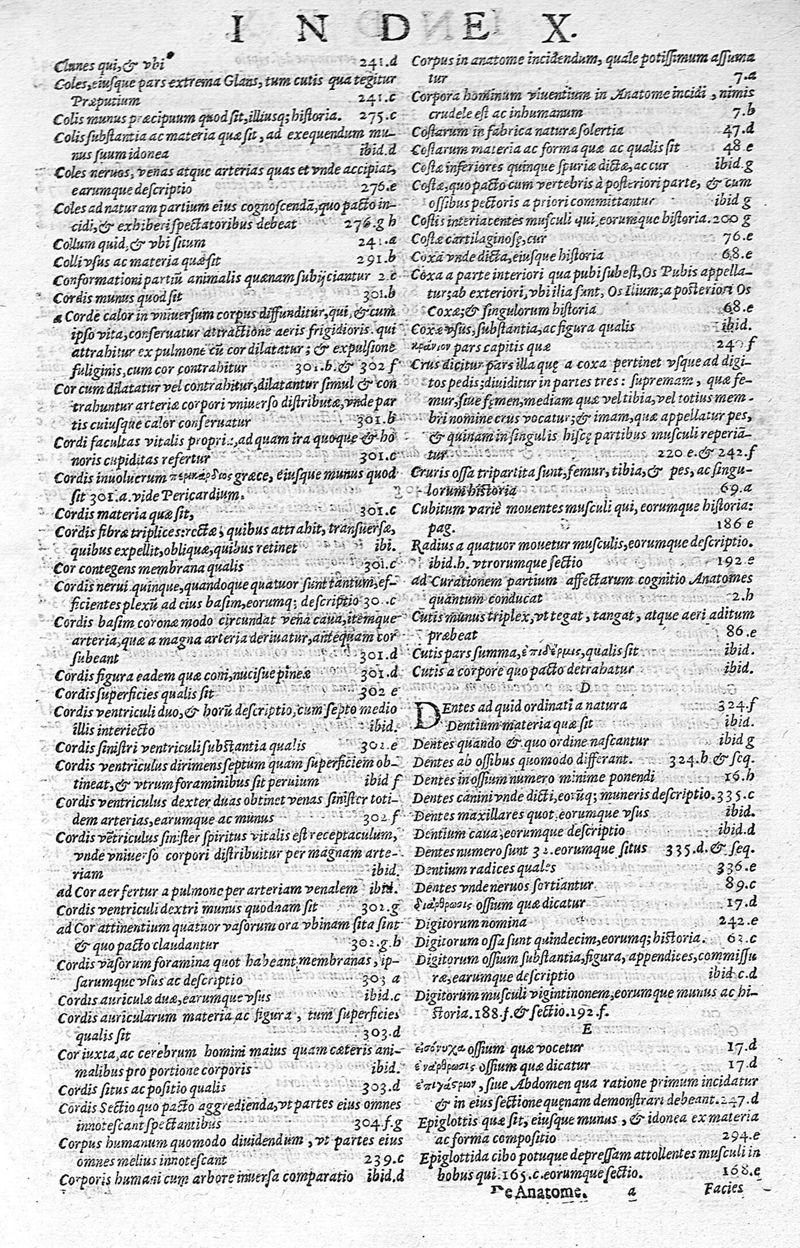 INDEX.
Clunes qui, & vbi 241.d
Coles, eiusque pars extrema Glans, tum cutis qua tegitur
Præputium 241.c
Colis munus præcipuum quod sit, illiusq; historia. 275.c
Colis substantia ac materia quæ sit, ad exequendum mu-
nus suum idonea ibid.d
Coles neruos, venas atque arterias quas et vnde accipiat,
earumque descriptio 276.e
Coles ad naturam partium eius cognoscendā, quo pacto in-
cidi, & exhiberi spectatoribus debeat 276.g h
Collum quid, & vbi situm 241.a
Colli vsus ac materia quæ sit 291.b
Conformationi partiū animalis quænam subijciantur 2.e
Cordis munus quod sit 301.b
a Corde calor in vniuersum corpus diffunditur, qui, & cum
ipso vita, conseruatur attractione aeris frigidioris. qui
attrahitur ex pulmone cū cor dilatatur; & expulsione
fuliginis, cum cor contrahitur 301.b. & 302 f
Cor cum dilatatur vel contrahitur, dilatantur simul & con
trahuntur arteriæ corpori vniuerso distributæ, vnde par
tis cuiusque calor conseruatur 301.b
Cordi facultas vitalis propria, ad quam ira quoque & ho
noris cupiditas refertur 301.c
Cordis inuolucrum περικάρδιος græce, eiusque munus quod
sit 301.a. vide Pericardium.
Cordis materia quæ sit, 301.c
Cordis fibræ triplices: rectæ, quibus attrahit, transuersæ,
quibus expellit, obliquæ, quibus retinet ibi.
Cor contegens membrana qualis 301.c
Cordis nerui quinque, quandoque quatuor sunt tantum, ef-
ficientes plexū ad eius basim, eorumq; descriptio 30 .c
Cordis basim coronæ modo circundat vena caua, itemque
arteria, quæ a magna arteria deriuatur, antequam cor
subeant 301.d
Cordis figura eadem quæ coni, nucisue pineæ 301.d
Cordis superficies qualis sit 302 e
Cordis ventriculi duo, & horū descriptio, cum septo medio
illis interiecto ibid.
Cordis sinistri ventriculi substantia qualis 302.e
Cordis ventriculus dirimens septum quam superficiem ob-
tineat, & vtrum foraminibus sit peruium ibid f
Cordis ventriculus dexter duas obtinet venas sinister toti-
dem arterias, earumque ac munus 302 f
Cordis vētriculus sinister spiritus vitalis est receptaculum,
vnde vniuerso corpori distribuitur per magnam arte-
riam ibid.
ad Cor aer fertur a pulmone per arteriam venalem ibid.
Cordis ventriculi dextri munus quodnam sit 302.g
ad Cor attinentium quatuor vasorum ora vbinam sita sint
& quo pacto claudantur 302.g.h
Cordis vasorum foramina quot habeant membranas, ip-
sarumque vsus ac descriptio 303 a
Cordis auriculæ duæ, earumque vsus ibid.c
Cordis auricularum materia ac figura, tum superficies
qualis sit 303.d
Cor iuxta, ac cerebrum homini maius quam cæteris ani-
malibus pro portione corporis ibid.
Cordis situs ac positio qualis 303.d
Cordis Sectio quo pacto aggredienda, vt partes eius omnes
innotescant spectantibus 304 f.g
Corpus humanum quomodo diuidendum, vt partes eius
omnes melius innotescant 239.c
Corporis humani cum arbore inuersa comparatio ibid.d
Corpus in anatome incidendum, quale potissimum assuma
tur 7.a
Corpora hominum viuentium in Anatome incidi, nimis
crudele est ac inhumanum 7.b
Costarum in fabrica naturæ solertia 47.d
Costarum materia ac forma quæ ac qualis sit 48 e
Costæ inferiores quinque spuriæ dictæ, ac cur ibid g
Costæ, quo pacto cum vertebris à posteriori parte, & cum
ossibus pectoris a priori committantur ibid g
Costis interiacentes musculi qui, eorumque historia. 200 g
Costæ cartilaginosę, cur 76.e
Coxa vnde dicta, eiusque historia 68.e
Coxa a parte interiori qua pubi subest, Os Pubis appella-
tur; ab exteriori, vbi ilia sunt, Os Ilium; a posteriori Os
Coxæ; & singulorum historia 68.e
Coxæ vsus, substantia, ac figura qualis ibid.
κρανίον pars capitis quæ 240 f
Crus dicitur pars illa quę a coxa pertinet vsque ad digi-
tos pedis; diuiditur in partes tres: supremam, quæ fe-
mur, siue femen, mediam quæ vel tibia, vel totius mem-
bri nomine crus vocatur; & imam, quæ appellatur pes,
& quinam in singulis hisce partibus musculi reperiā-
tur 220 e. & 242.f
Cruris ossa tripartita sunt, femur, tibia, & pes, ac singu-
lorum historia 69.a
Cubitum variè mouentes musculi qui, eorumque historia:
pag. 186 e
Radius a quatuor mouetur musculis, eorumque descriptio.
ibid.h. vtrorumque sectio 192.e
ad Curationem partium affectarum cognitio Anatomes
quantum conducat 2.h
Cutis munus triplex, vt tegat, tangat, atque aeri aditum
præbeat 86.e
Cutis pars summa, ἐπιδέρμις, qualis sit ibid.
Cutis a corpore quo pacto detrahatur ibid.
D
DEntes ad quid ordinati a natura 324.f
Dentium materia quæ sit ibid.
Dentes quando & quo ordine nascantur ibid g
Dentes ab ossibus quomodo differant. 324.h & seq.
Dentes in ossium numero minime ponendi 16.h
Dentes canini vnde dicti, eorūq; muneris descriptio. 335.c
Dentes maxillares quot, eorumque vsus ibid.
Dentium caua, eorumque descriptio ibid.d
Dentes numero sunt 32. eorumque situs 335.d. & seq.
Dentium radices quales 336.e
Dentes vnde neruos sortiantur 89.c
διάρθρωσις ossium quæ dicatur 17.d
Digitorum nomina 242.e
Digitorum ossa sunt quindecim, eorumq; historia. 62.c
Digitorum ossium substantia, figura, appendices, commissu
ræ, earumque descriptio ibid c.d
Digitorum musculi vigintinonem, eorumque munus ac hi-
storia. 188.f. & sectio. 192.f.
E
ossium quæ vocetur 17.d
ἐνάρθρωσις ossium quæ dicatur 17.d
ἐπιγάστριον, siue Abdomen qua ratione primum incidatur
& in eius sectione quænam demonstrari debeant. 247.d
Epiglottis quæ sit, eiusque munus, & idonea ex materia
ac forma compositio 294.e
Epiglottida cibo potuque depressam attollentes musculi in
bobus qui. 165.c. eorumque sectio. 168.e
De Anatome. a Facies